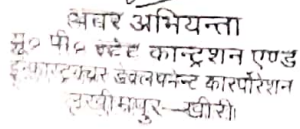 अवर अभियन्ता
यू० पी० स्टेट कान्ट्रशन एण्ड
इन्फ्रास्ट्रक्चर डेवलपमेन्ट कारपोरेशन
लखीमपुर—खीरी।